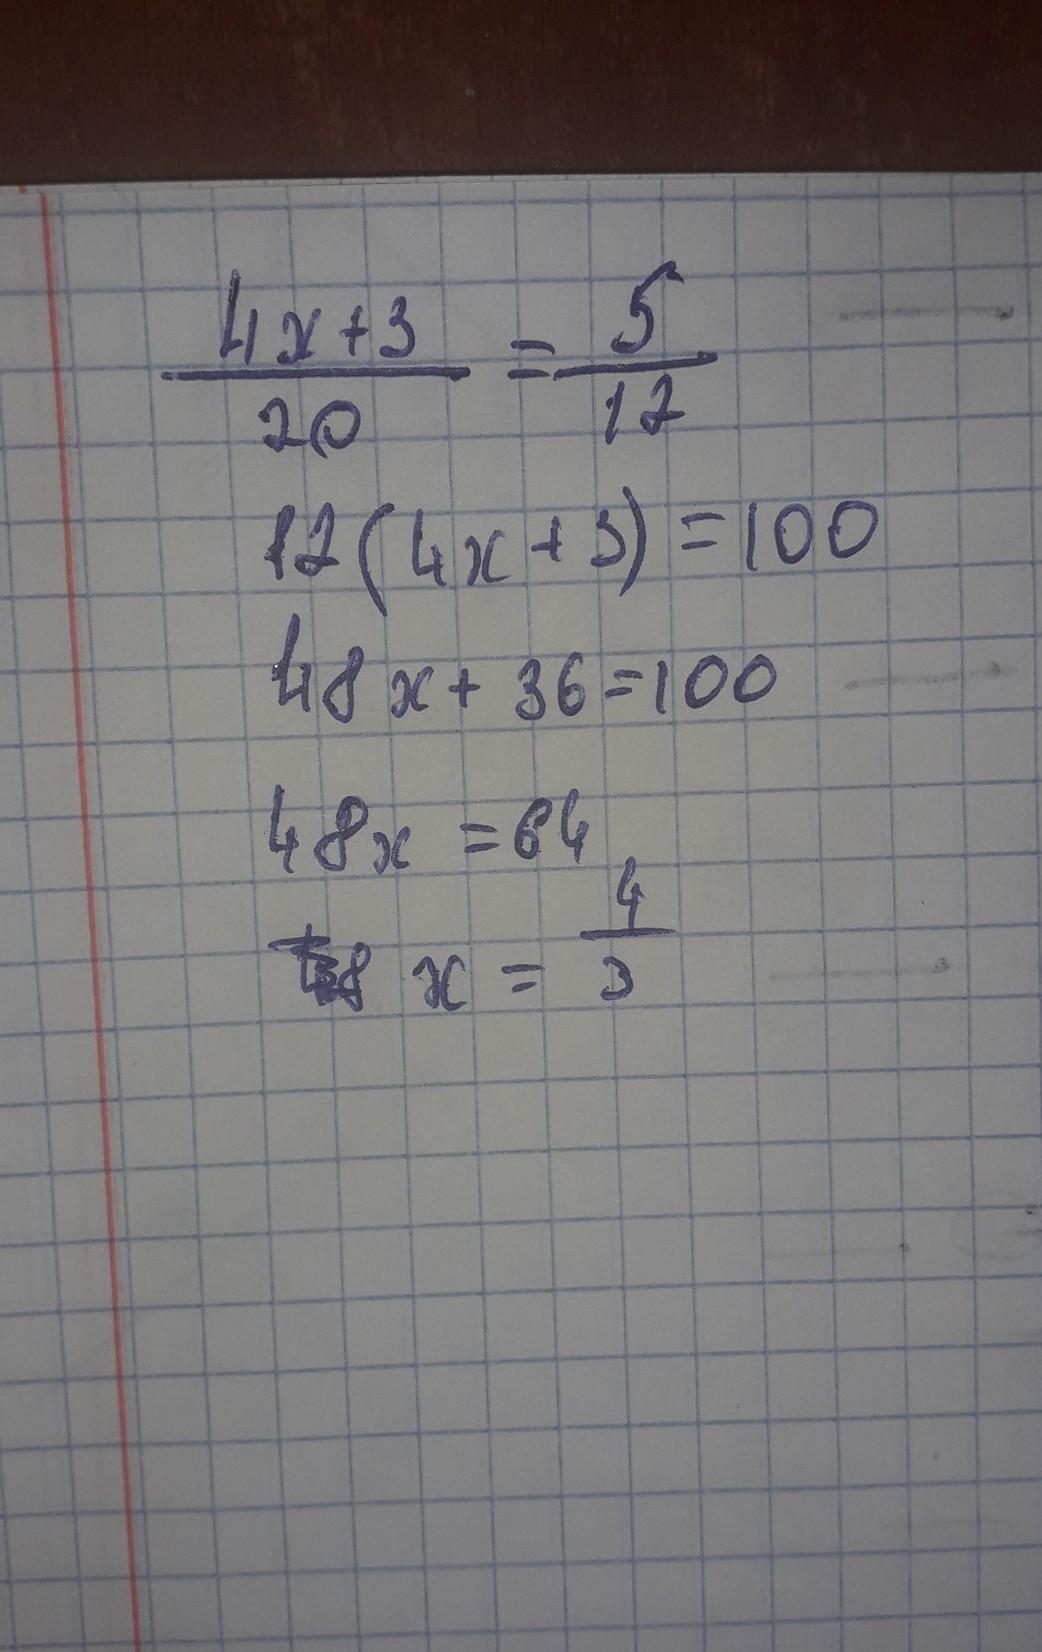 4x+3/20 = 5/12
12(4x+3)=100
48x+36=100
48x=64
x = 4/3